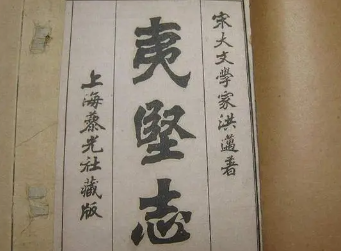 宋大文學家洪邁著
夷堅志
上海黎光社藏版